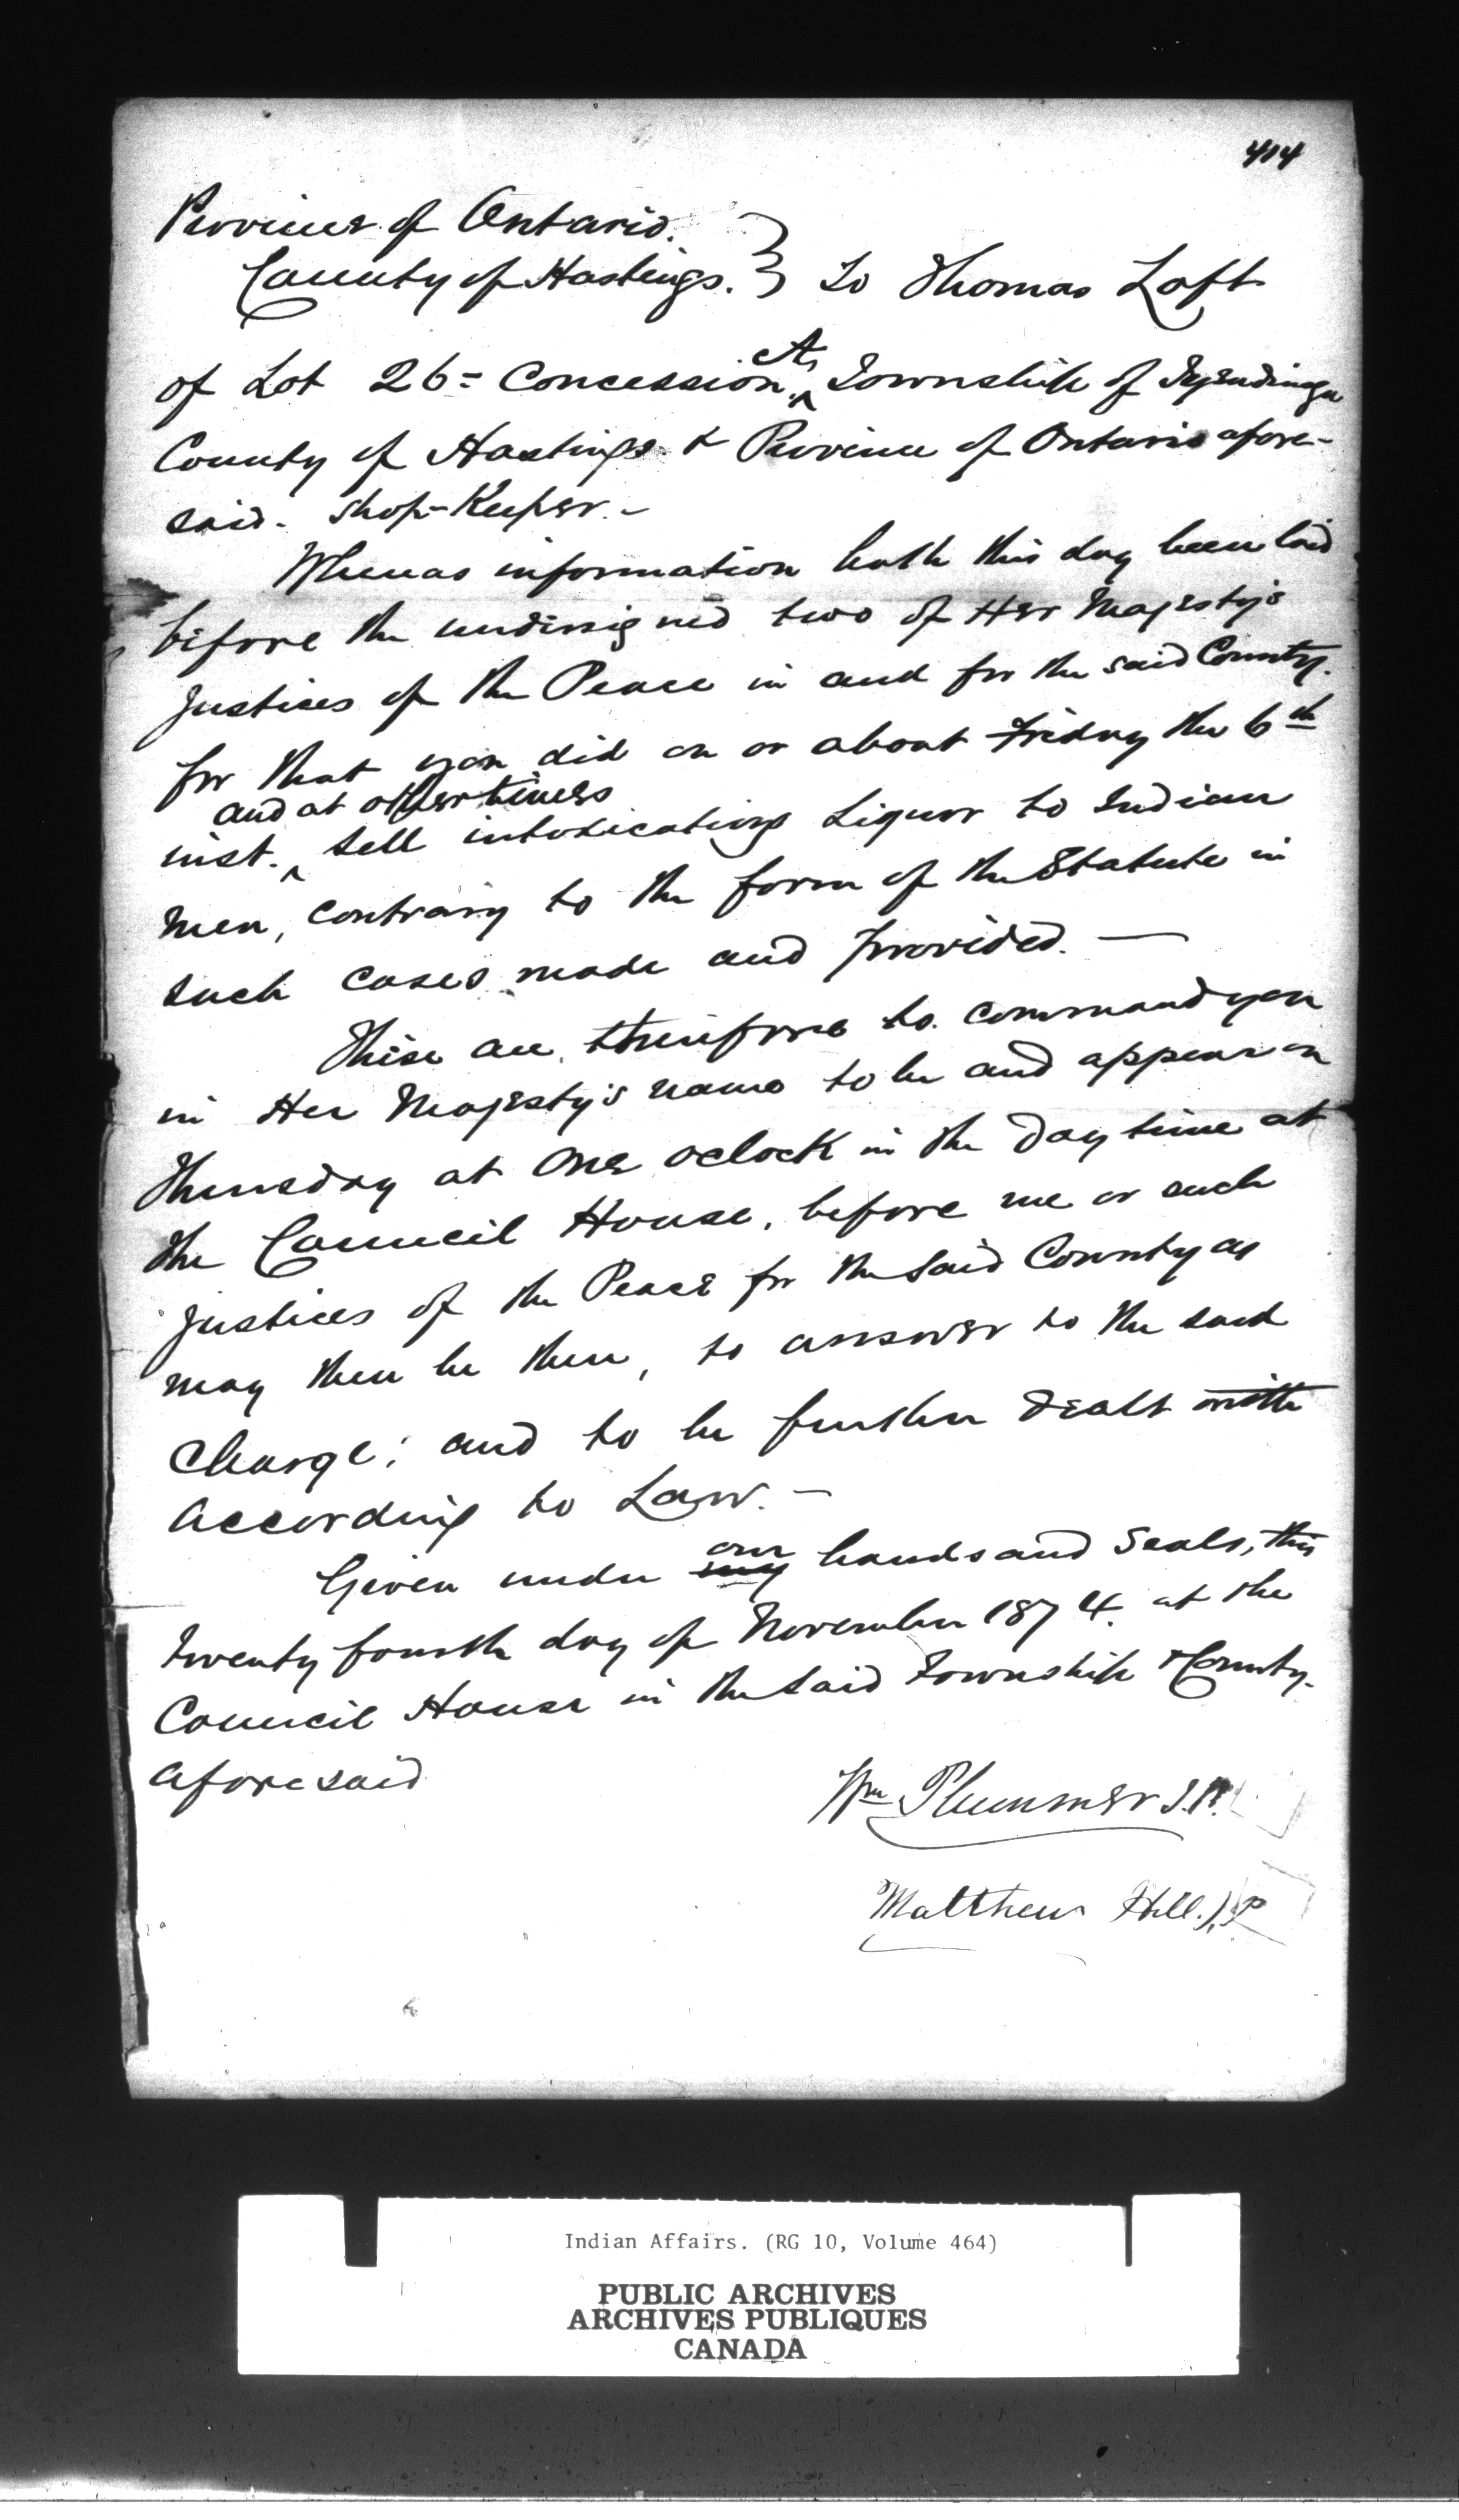 414
Province of Ontario.
County of Hastings. } To Thomas Loft
of Lot 26 = Concession A, Township of Tyendinaga
County of Hastings & Province of Ontario afore-
said. Shop-Keeper. -
Whereas information hath this day been laid
before the undersigned two of Her Majesty's
Justices of the Peace in and for the said County.
for that you did on or about Friday the 6th
and at other times
inst. ^ sell intoxicating Liquor to Indian
men, contrary to the form of the Statute in
such cases made and provided. —
These are therefore to command you
in Her Majesty's name to be and appear on
Thursday at One oclock in the day time at
the Council House, before me or such
Justices of the Peace for the said County as
may then be there, to answer to the said
Charge; and to be further dealt with
according to Law. -
Given under our my hands and Seals, this
twenty fourth day of November 1874. at the
Council House in the said Township & County.
aforesaid
Wm Plummer J.P.
Matthew Hill. J.P
Indian Affairs. (RG 10, Volume 464)
PUBLIC ARCHIVES
ARCHIVES PUBLIQUES
CANADA